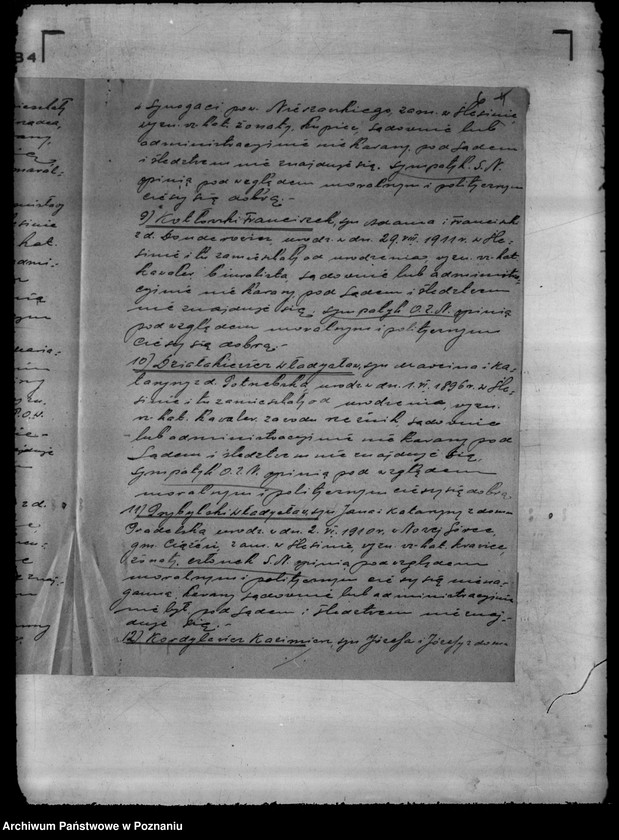 34
w Synogaci pow. Nieszawskiego, zam. w Ślesinie
wyzn. rz. kat. żonaty, kupiec, sądownie lub
administracyjnie nie karany, pod sądem
i śledztwem nie znajduje się, sympatyk S.N.
opinią pod względem moralnym i politycznym
cieszy się dobrą.-
9) Kozłowski Franciszek, syn Adama i Franciszki
z d. urodz. w dn. 29.VII.1911 r. w Śle-
sinie i tu zamieszkały od urodzenia, wyzn. rz. kat.
kawaler, biuralista, sądownie lub administra-
cyjnie nie karany, pod sądem i śledztwem
nie znajduje się, sympatyk O.Z.N. opinią
pod względem moralnym i politycznym
cieszy się dobrą.-
10) Dziatkiewicz Władysław, syn Marcina i Ka-
tarzyny z d. urodz. w dn. 1.VI.1896 r. w Śle-
sinie i tu zamieszkały od urodzenia, wyzn.
rz. kat. kawaler, z zawodu rzeźnik, sądownie
lub administracyjnie nie karany pod
sądem i śledztwem nie znajduje się,
sympatyk O.Z.N. opinią pod względem
moralnym i politycznym cieszy się dobrą.
11) Przybylski Władysław, syn Jana i Katarzyny z domu
urodz. w dn. 2.VI.1910 r. w Nowej Górce,
gm. Ciążeń, zam. w Ślesinie, wyzn. rz. kat. krawiec,
żonaty, członek S.N. opinią pod względem
moralnym i politycznym cieszy się niena-
ganną, karany sądownie lub administracyjnie
nie był, pod sądem i śledztwem nie znaj-
duje się.-
12) Kordylewicz Kazimierz, syn Józefa i Józefy z domu
Archiwum Państwowe w Poznaniu